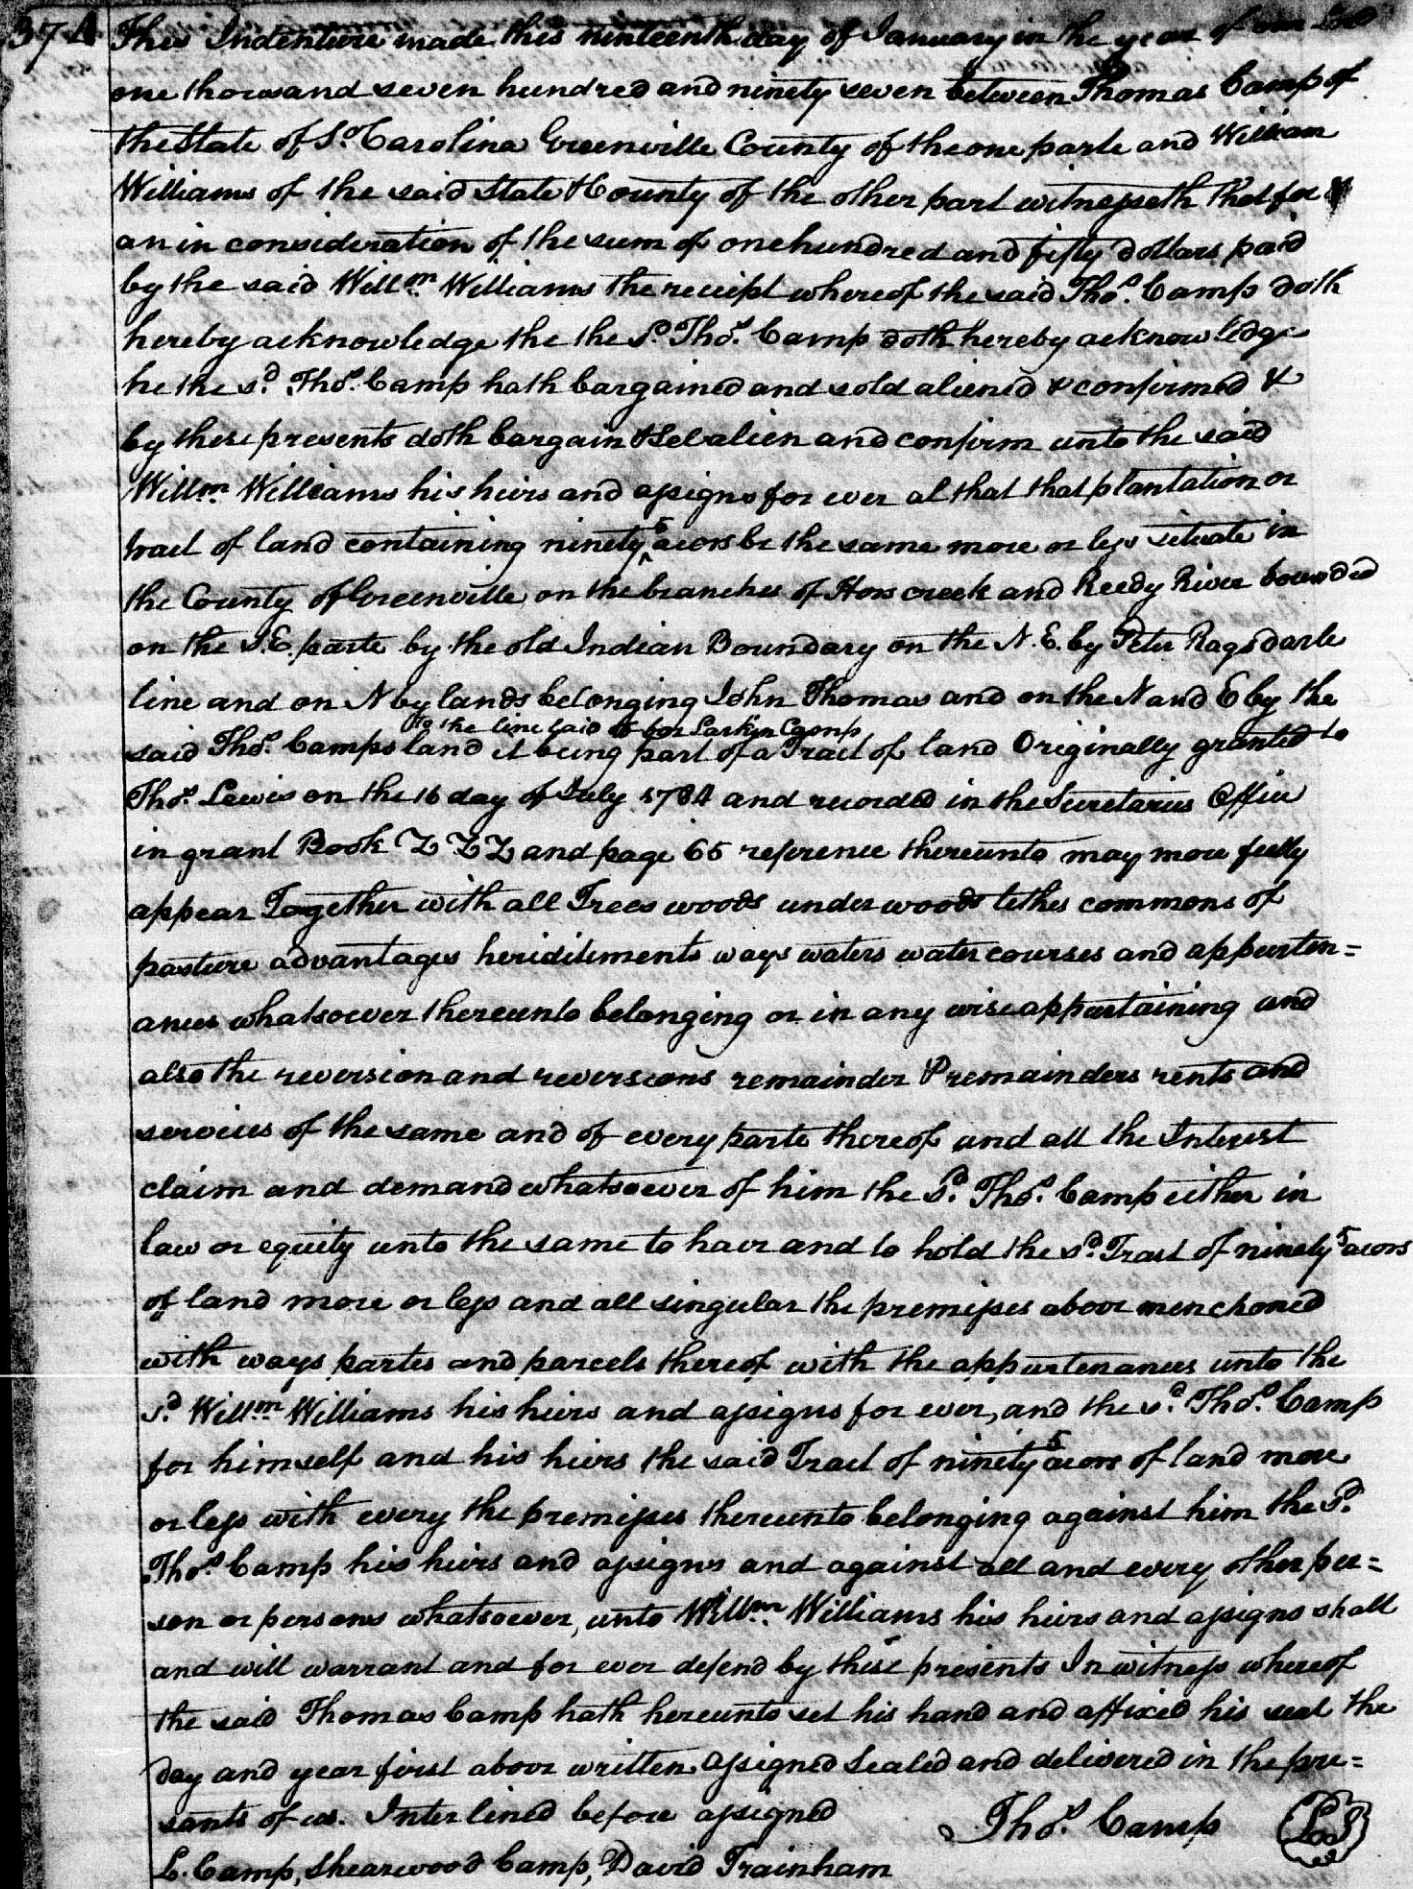 374 This Indenture made this ninteenth day of January in the year of our Lord
one thousand seven hundred and ninety seven between Thomas Camp of
the State of So. Carolina Greenville County of the one parte and William
Williams of the said State & County of the other part witnesseth that for
an in consideration of the sum of one hundred and fifty dollars paid
by the said Willm. Williams the receipt whereof the said Thos. Camp doth
hereby acknowledge the the Sd. Thos. Camp doth hereby acknowledge
he the sd. Thos. Camp hath bargained and sold aliened & confirmed &
by these presents doth bargain & Sel alien and confirm unto the said
Willm. Williams his heirs and assigns for ever al that that plantation or
tract of land containing ninety 5 acors be the same more or less situate in
the County of Greenville on the branches of Hors creek and Reedy River bounded
on the S.E. parte by the old Indian Boundary on the N.E. by Peter Ragsdarle
line and on N by lands belonging John Thomas and on the N and E by the
to the line laid of for Larkin Camp
said Thos. Camps land it being part of a Tract of land Originally granted to
Thos. Lewis on the 16 day of July 1784 and recorded in the Secretaries Office
in grant Book ZZZ and page 65 reference thereunto may more fully
appear Together with all Trees woods under woods tithes commons of
pasture advantages heriditiments ways waters water courses and appurten=
ances whatsoever thereunto belonging or in any wise appurtaining and
also the reversion and reversions remainder & remainders rents and
services of the same and of every parte thereof and all the Interest
claim and demand whatsoever of him the Sd. Thos. Camp either in
law or equity unto the same to have and to hold the sd. Tract of ninety 5 acors
of land more or less and all singular the premises above menchoned
with ways partes and parcels thereof with the appurtenances unto the
sd. Willm. Williams his heirs and assigns for ever, and the sd. Thos. Camp
for himself and his heirs the said Tract of ninety 5 acors of land more
or less with every the premises thereunto belonging against him the Sd.
Thos. Camp his heirs and assigns and against all and every other per=
son or persons whatsoever, unto Willm. Williams his heirs and assigns shall
and will warrant and for ever defend by these presents In witness whereof
the said Thomas Camp hath hereunto set his hand and affixed his seal the
day and year first above written. assigned Sealed and delivered in the pre=
sants of us. Inter lined before assigned Thos. Camp LS
L. Camp, Shearwood Camp, David Trainham